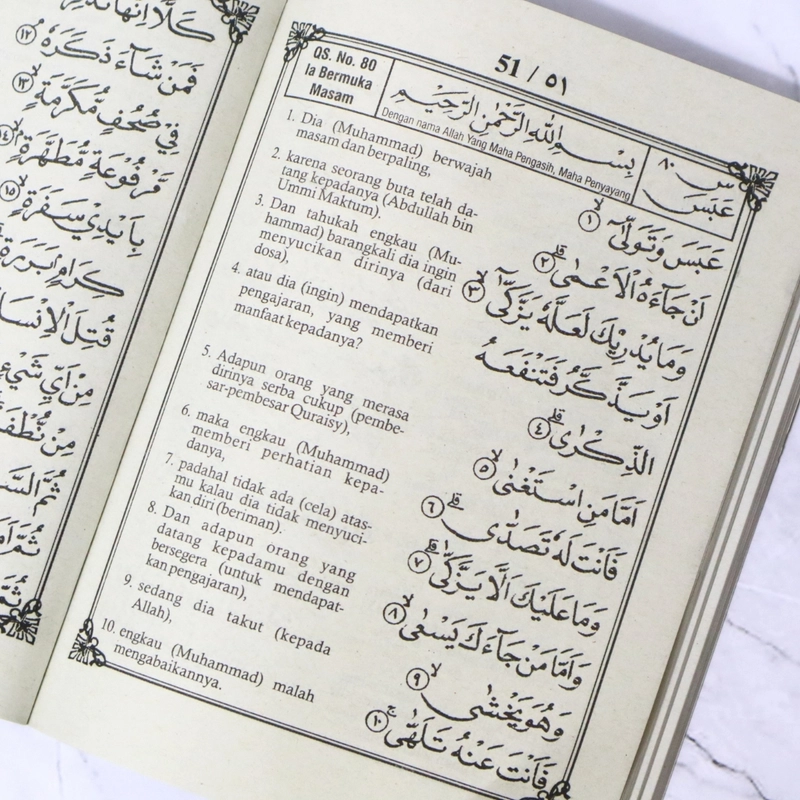 كَلَّآ اِنَّهَا تَذْكِرَةٌ
فَمَنْ شَآءَ ذَكَرَهٗ ۝١٢
فِيْ صُحُفٍ مُّكَرَّمَةٍ ۝١٣
مَّرْفُوْعَةٍ مُّطَهَّرَةٍ ۝١٤
بِاَيْدِيْ سَفَرَةٍ ۝١٥
كِرَامٍ بَرَرَةٍ
قُتِلَ الْاِنْسَا
مِنْ اَيِّ شَيْءٍ
مِنْ نُّطْفَةٍ
ثُمَّ السَّ
ثُمَّ اَمَا
51 / ٥١
QS. No. 80
Ia Bermuka
Masam
بِسْمِ اللّٰهِ الرَّحْمٰنِ الرَّحِيْمِ
Dengan nama Allah Yang Maha Pengasih, Maha Penyayang
س ٨٠
عَبَسَ
1. Dia (Muhammad) berwajah
masam dan berpaling,
2. karena seorang buta telah da-
tang kepadanya (Abdullah bin
Ummi Maktum).
3. Dan tahukah engkau (Mu-
hammad) barangkali dia ingin
menyucikan dirinya (dari
dosa),
4. atau dia (ingin) mendapatkan
pengajaran, yang memberi
manfaat kepadanya?
5. Adapun orang yang merasa
dirinya serba cukup (pembe-
sar-pembesar Quraisy),
6. maka engkau (Muhammad)
memberi perhatian kepa-
danya,
7. padahal tidak ada (cela) atas-
mu kalau dia tidak menyuci-
kan diri (beriman).
8. Dan adapun orang yang
datang kepadamu dengan
bersegera (untuk mendapat-
kan pengajaran),
9. sedang dia takut (kepada
Allah),
10. engkau (Muhammad) malah
mengabaikannya.
عَبَسَ وَتَوَلّٰىٓ ۙ ۝١
اَنْ جَآءَهُ الْاَعْمٰىۗ ۝٢
وَمَا يُدْرِيْكَ لَعَلَّهٗ يَزَّكّٰىٓ ۙ ۝٣
اَوْ يَذَّكَّرُ فَتَنْفَعَهُ
الذِّكْرٰىۗ ۝٤
اَمَّا مَنِ اسْتَغْنٰىۙ ۝٥
فَاَنْتَ لَهٗ تَصَدّٰىۗ ۝٦
وَمَا عَلَيْكَ اَلَّا يَزَّكّٰىۗ ۝٧
وَاَمَّا مَنْ جَآءَكَ يَسْعٰىۙ ۝٨
وَهُوَ يَخْشٰىۙ ۝٩
فَاَنْتَ عَنْهُ تَلَهّٰىۚ ۝١٠